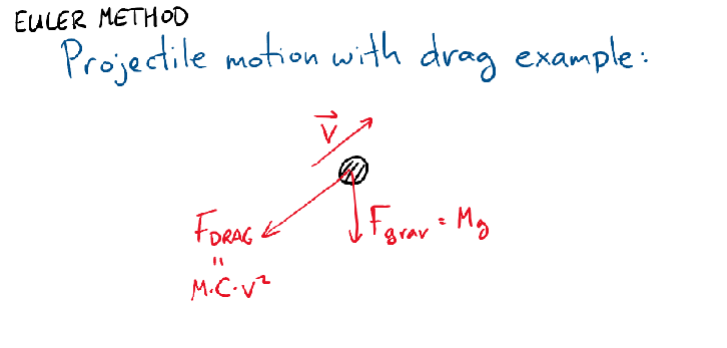 EULER METHOD
Projectile motion with drag example:
V
FDRAG
Fgrav = Mg
"
M.C.v²